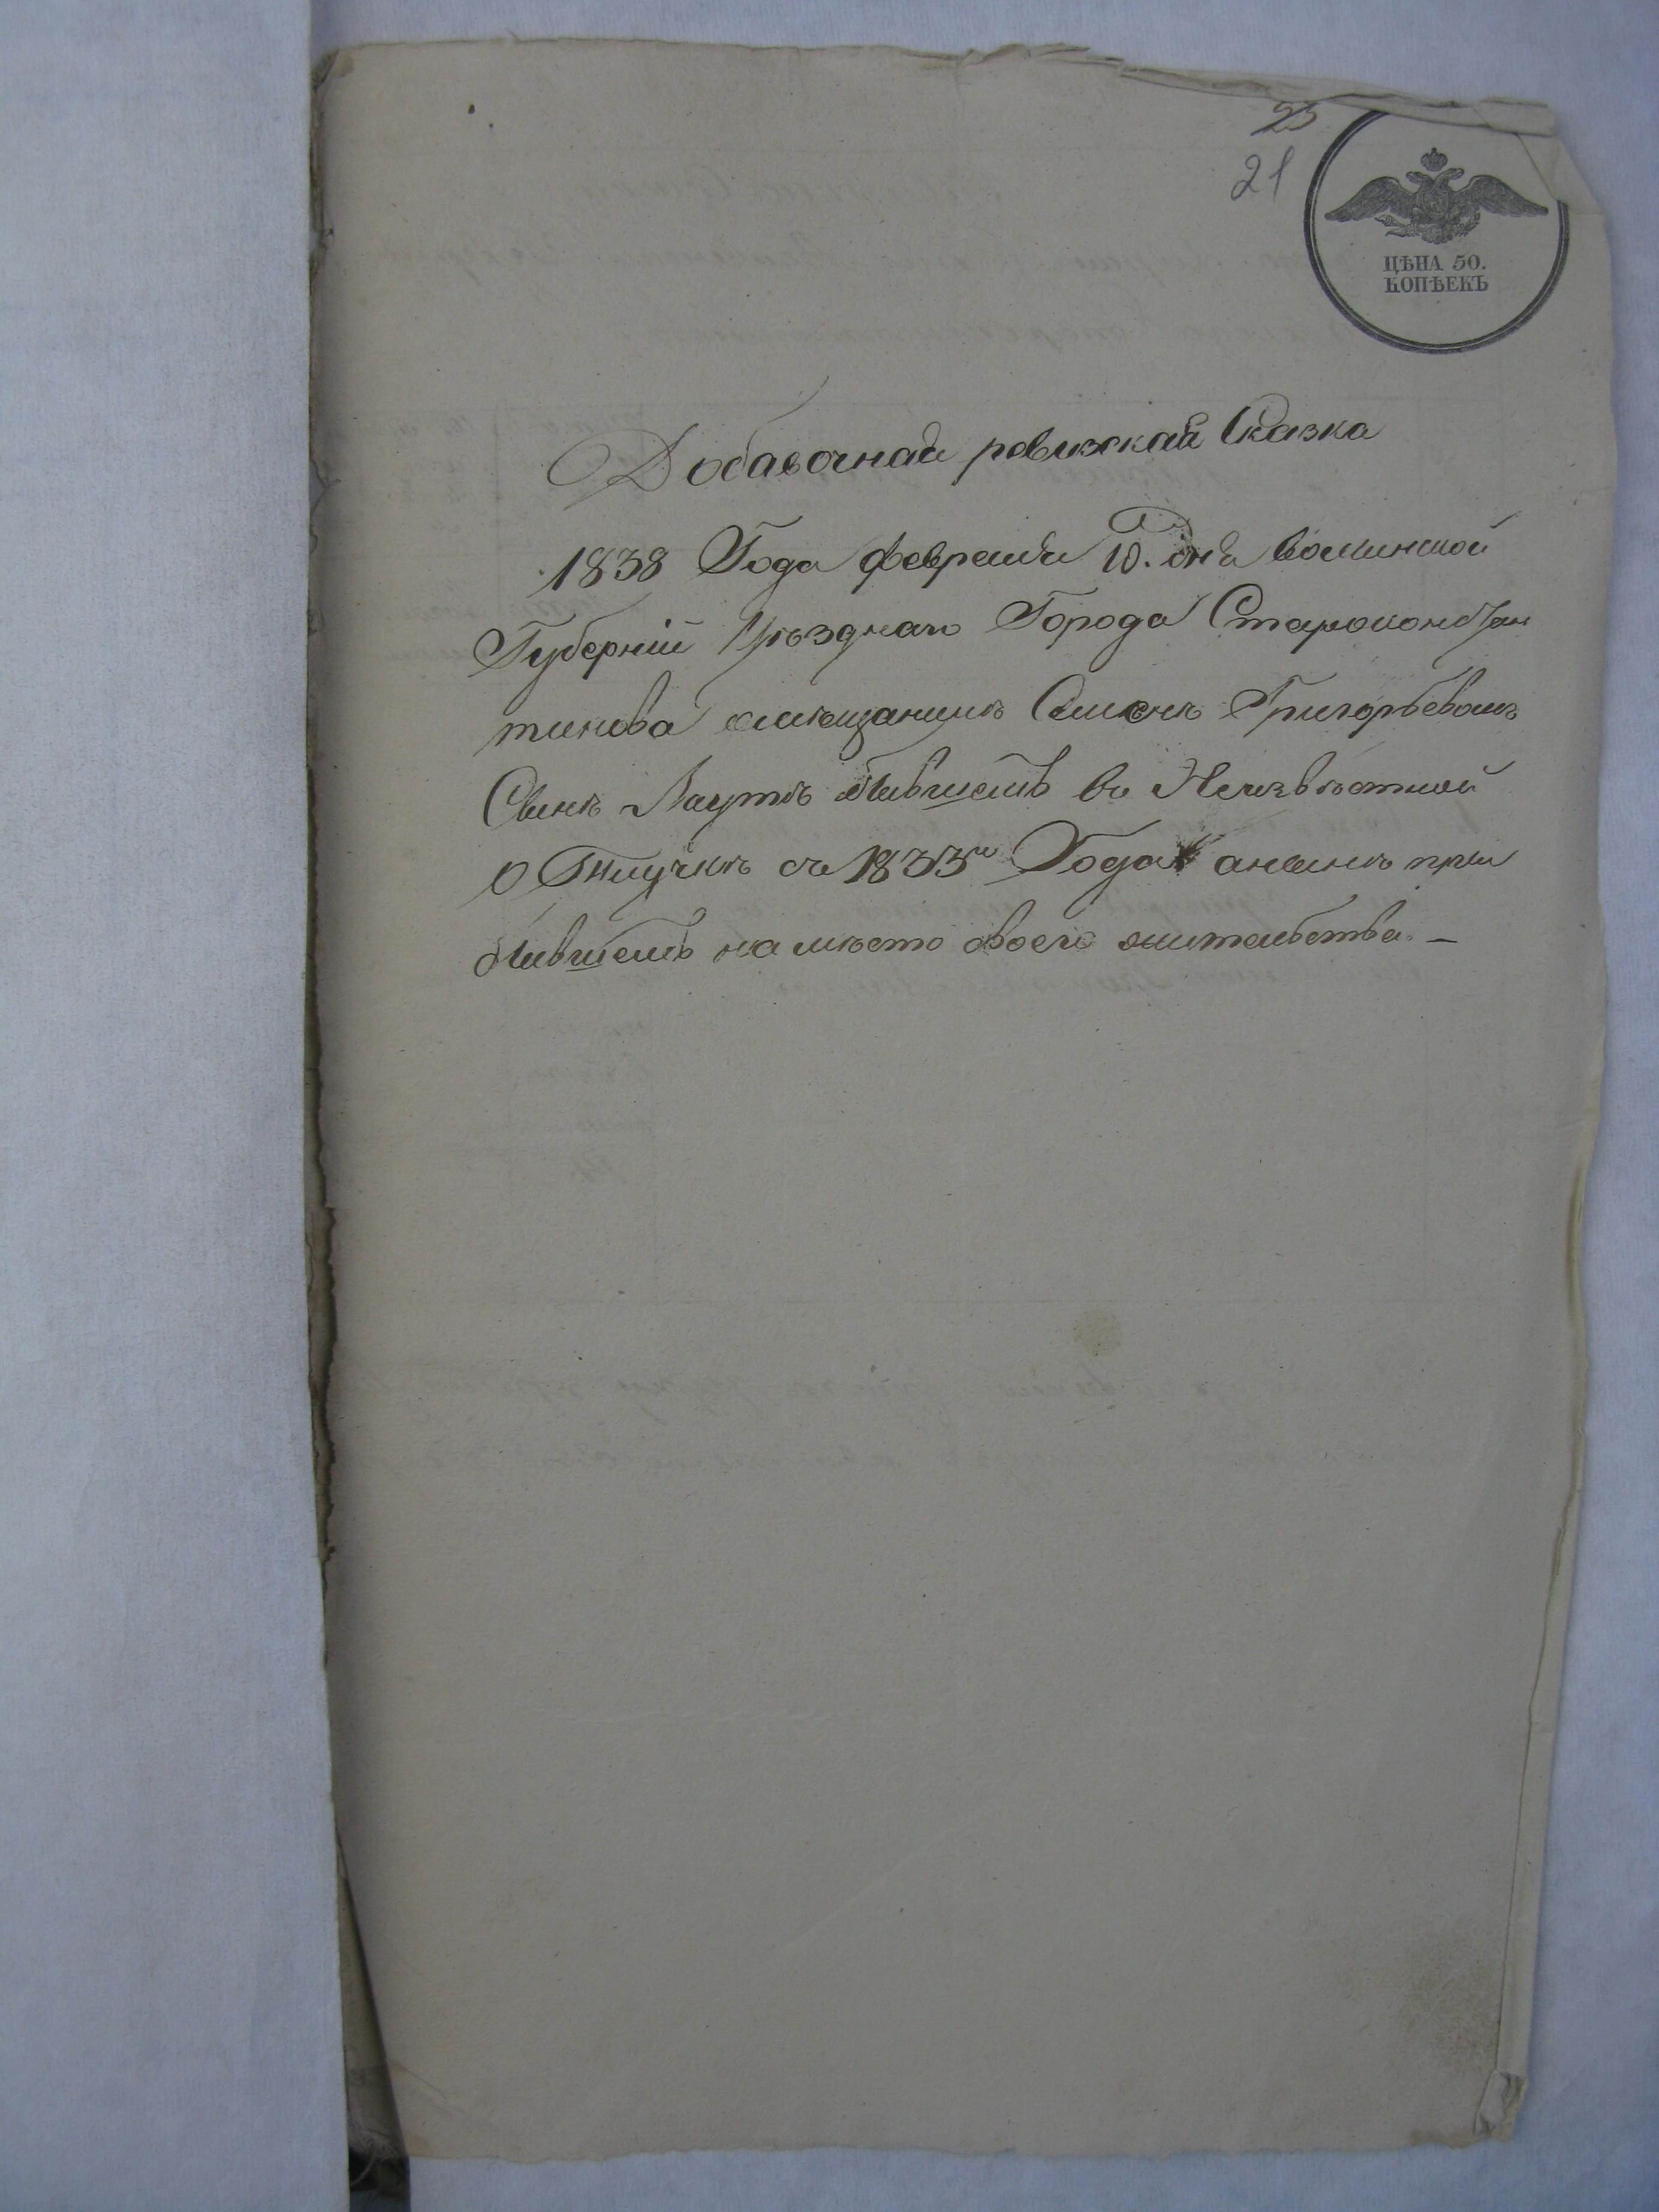 25
21
ЦѢНА 50.
КОПѢЕКЪ
Добавочная ревизская Сказка
1838 Года февраля 10. дня волинской
Губерніи Уѣзднаго Города Староконстан
тинова о мещанинѣ Григорьевомъ
бывшемъ во Неизвѣстной
Отлучкѣ съ 1833го Года а нынѣ при
бывшемъ на мѣсто своего жительства. —